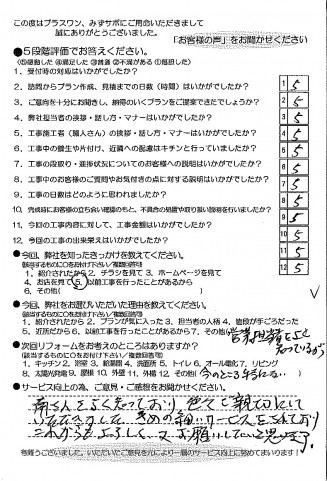 この度はプラスワン、みずサポにご用命いただきまして
誠にありがとうございました。
「お客様の声」をお聞かせください
●5段階評価でお答えください。
(⑤感動した ④満足した ③普通 ②不満がある ①落胆した)
1．受付時の対処はいかがでしたか？ 1 5
2．訪問からプラン作成、見積までの日数（時間）はいかがでしたか？ 2 5
3．ご意向を十分にお聞きし、納得のいくプランをご提案できたでしょうか？ 3 5
4．弊社担当者の挨拶・話し方・マナーはいかがでしたか？ 4 5
5．工事施工者（職人さん）の挨拶・話し方・マナーはいかがでしたか？ 5 5
6．工事中の養生や片付け、近隣への配慮はキチンと行っていましたか？ 6 5
7．工事の段取り・進捗状況についてのお客様への説明はいかがでしたか？ 7 5
8．工事中のお客様のご質問やお気付きの点に対する説明はいかがでしたか？ 8 5
9．工事の日数はどのように思われましたか？ 9 5
10．完成時にお客様の立ち会い確認のもと、不具合の処置や取り扱い説明を行いましたか？ 10 5
11．今回の工事内容に対して、工事金額はいかがでしたか？ 11 5
12．今回の工事の出来栄えはいかがでしたか？ 12 5
●今回、弊社を知ったきっかけを教えてください。
(該当するものに○をお付け下さい／複数回答可)
1．紹介されたから 2．チラシを見て 3．ホームページを見て
4．お店を見て 5．以前工事を行ったことがあるから
6．その他(　　)
●今回、弊社をお選びいただいた理由を教えてください。
(該当するものに○をお付け下さい／複数回答可)
1．紹介されたから 2．プランが気に入った 3．担当者の人柄 4．値段が手ごろだった
5．近所だから 6．以前工事を行ったことがあるから 7．その他( 営業担当者をよく
知っているから
●次回リフォームをお考えのところはありますか？
(該当するものに○をお付け下さい／複数回答可)
1．キッチン 2．浴室 3．給湯器 4．洗面所 5．トイレ 6．オール電化 7．リビング
8．太陽光発電 9．屋根 10．外壁 11．外構 12．その他( 今のところ特にない
●サービス向上の為、ご意見・ご感想をお聞かせください。
さんをよく知っており 色々と親切にして
いただきまして、きめの細いサービスをされており
これからもよろしく、又お願いしたいと思います。
有難うございました。いただいたご意見を元により一層のサービス向上に努めてまいります！